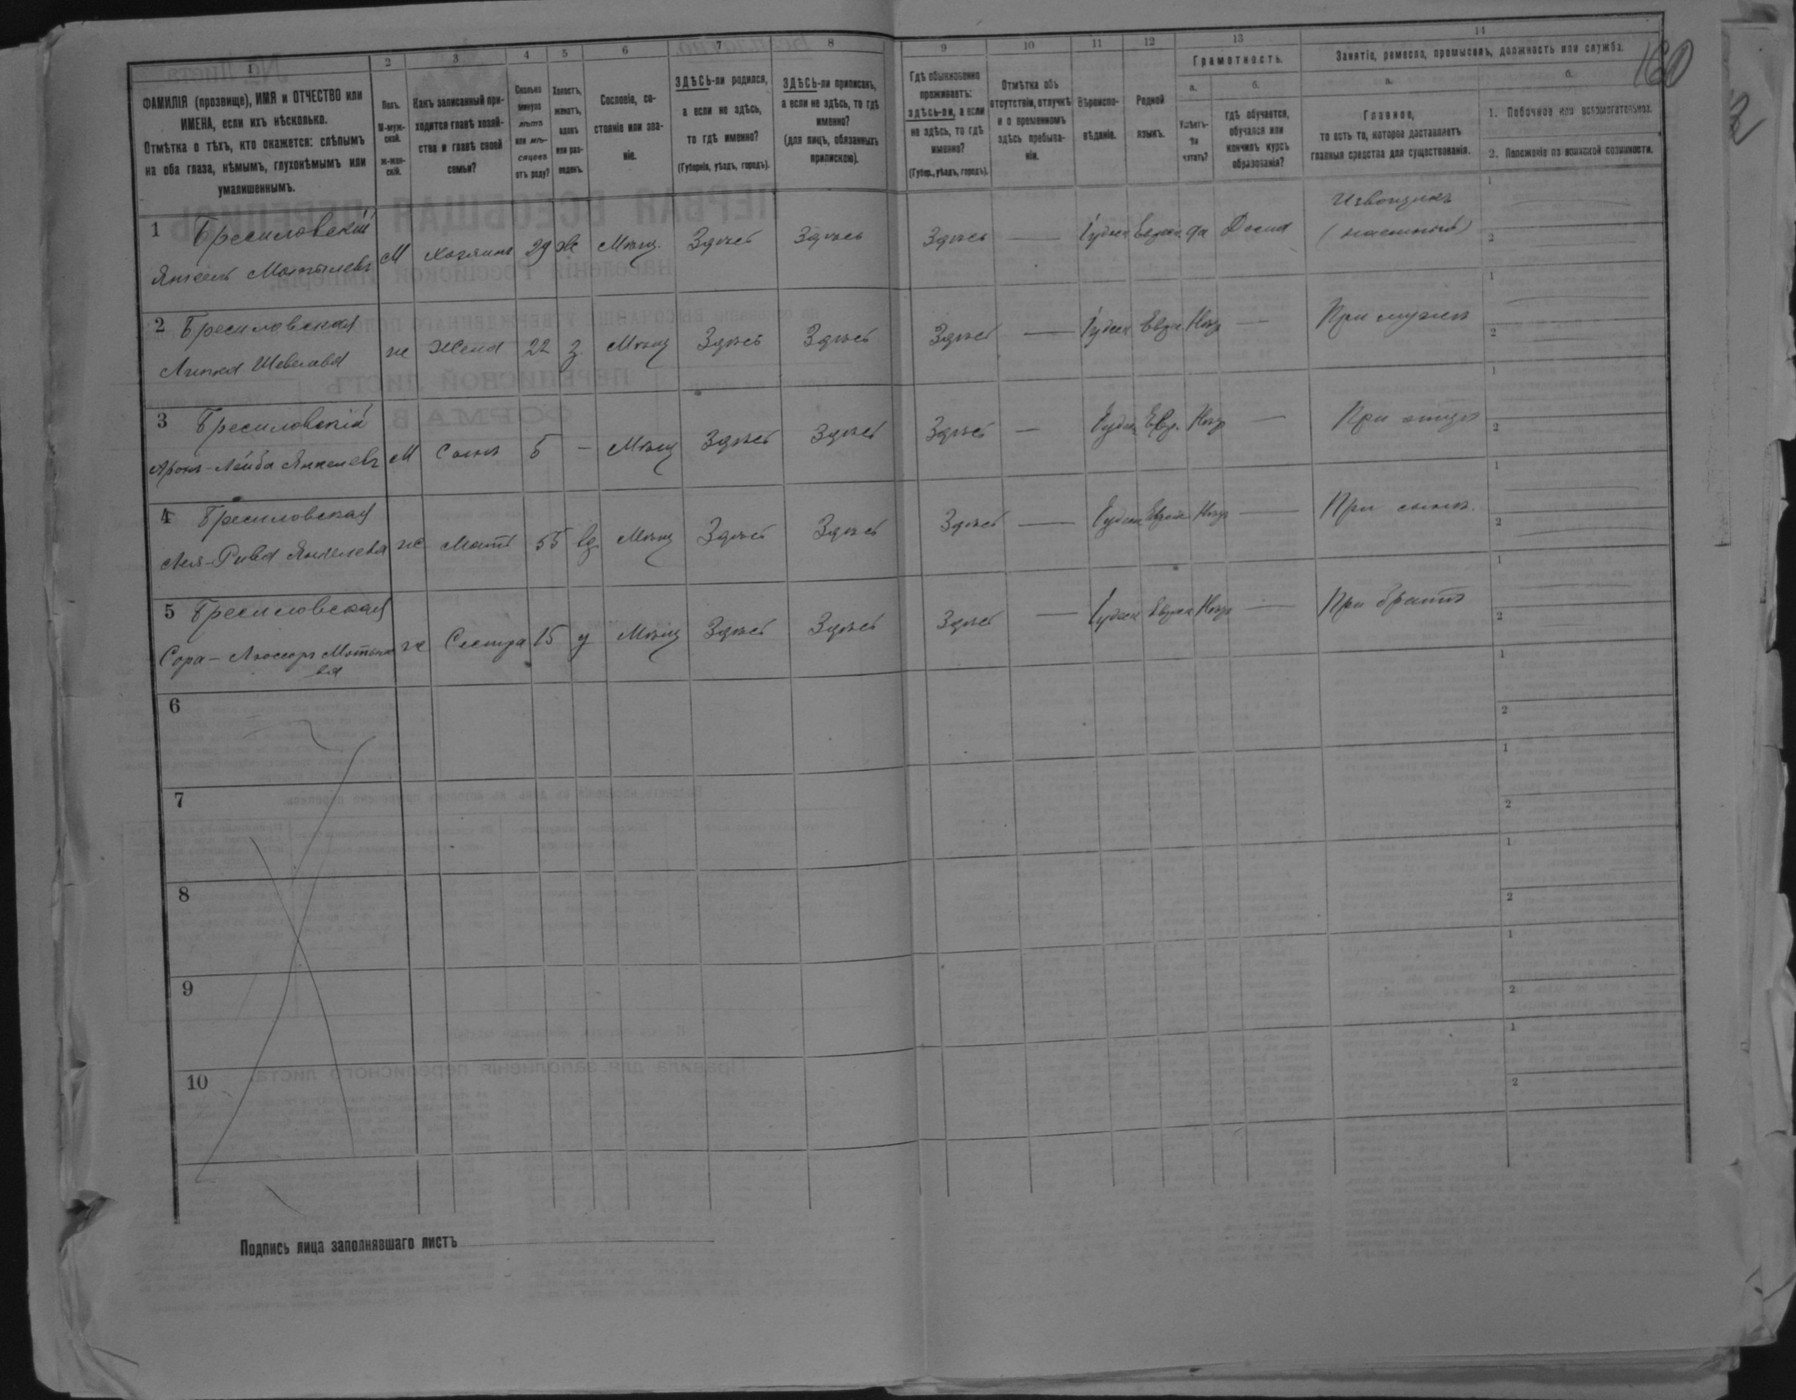 160
1
2
3
4
5
6
7
8
9
10
11
12
13
14
ФАМИЛІЯ (прозвище), ИМЯ и ОТЧЕСТВО или
ИМЕНА, если ихъ нѣсколько.
Отмѣтка о тѣхъ, кто окажется: слѣпымъ
на оба глаза, нѣмымъ, глухонѣмымъ или
умалишеннымъ.
Полъ.
М-муж-
ской.
ж-жен-
скій.
Какъ записанный при-
ходится главѣ хозяй-
ства и главѣ своей
семьи?
Сколько
минуло
лѣтъ
или мѣ-
сяцевъ
отъ роду?
Холостъ,
женатъ,
вдовъ
или раз-
веденъ.
Сословіе, со-
стояніе или зва-
ніе.
ЗДѢСЬ-ли родился,
а если не здѣсь,
то гдѣ именно?
(Губернія, уѣздъ, городъ).
ЗДѢСЬ-ли приписанъ,
а если не здѣсь, то гдѣ
именно?
(для лицъ, обязанныхъ
припискою).
Гдѣ обыкновенно
проживаетъ:
здѣсь-ли, а если
не здѣсь, то гдѣ
именно?
(Губер., уѣздъ, городъ).
Отмѣтка объ
отсутствіи, отлучкѣ
и о временномъ
здѣсь пребыва-
ніи.
Вѣроиспо-
вѣданіе.
Родной
языкъ.
Грамотность.
а.
Умѣетъ-
ли
читать?
б.
гдѣ обучается,
обучался или
кончилъ курсъ
образованія?
Занятіе, ремесло, промыселъ, должность или служба.
а.
Главное,
то есть то, которое доставляетъ
главныя средства для существованія.
б.
1. Побочное или вспомогательное.
2. Положеніе по воинской повинности.
1 Бресиловскій
Янкель Мотелевъ
М Хозяинъ 29 ж Мѣщ. Здѣсь Здѣсь Здѣсь — Іудей Еврей да Дома Извощикъ
(наемный)
2 Бресиловская
Шевелева
ж Жена 22 з. Мѣщ Здѣсь Здѣсь Здѣсь — Іудей Евр Нѣт — При мужѣ
3 Бресиловскій
Аронъ-Лейба Янкелевъ
М Сынъ 5 — Мѣщ Здѣсь Здѣсь Здѣсь — Іудей Евр. Нѣт — При отцѣ
4 Бресиловская
Рива Янкелева
ж Мать 55 вд. Мѣщ Здѣсь Здѣсь Здѣсь — Іудей Еврей Нѣт — При сынѣ.
5 Бресиловская
Сора-
ж Сестра 15 д Мѣщ Здѣсь Здѣсь Здѣсь — Іудей Еврей Нѣт — При братѣ
6
7
8
9
10
Подпись лица заполнявшаго листъ